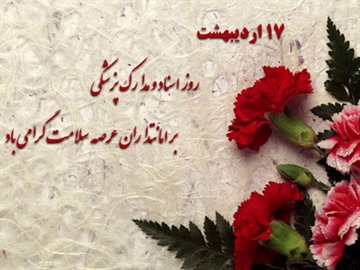 ۱۷ اردیبهشت
روز اسناد و مدارک پزشکی
بر امانتداران عرصه سلامت گرامی باد